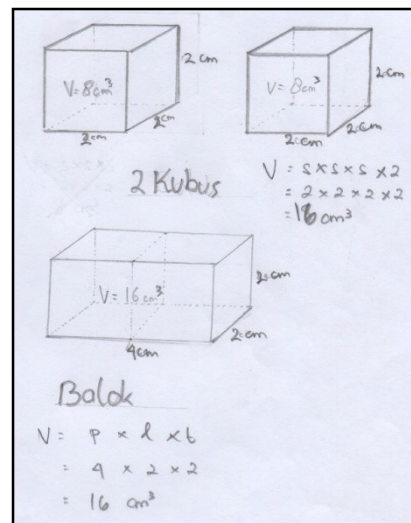 V = 8 cm³
2 cm
2 cm
2 cm
V = 8 cm³
2 cm
2 cm
2 cm
2 Kubus
V = s x s x s x 2
= 2 x 2 x 2 x 2
= 16 cm³
V = 16 cm³
2 cm
2 cm
4 cm
Balok
V = p x l x t
= 4 x 2 x 2
= 16 cm³